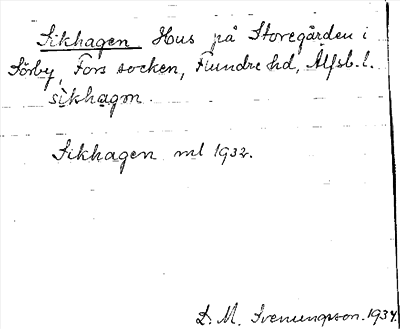 Sikhagen Hus på Storegården i
Sörby, Fors socken, Flundre hd, Älfsb. l.
sikhagɘn.
Sikhagen ml 1932.
D. M. Svenungsson. 1934.